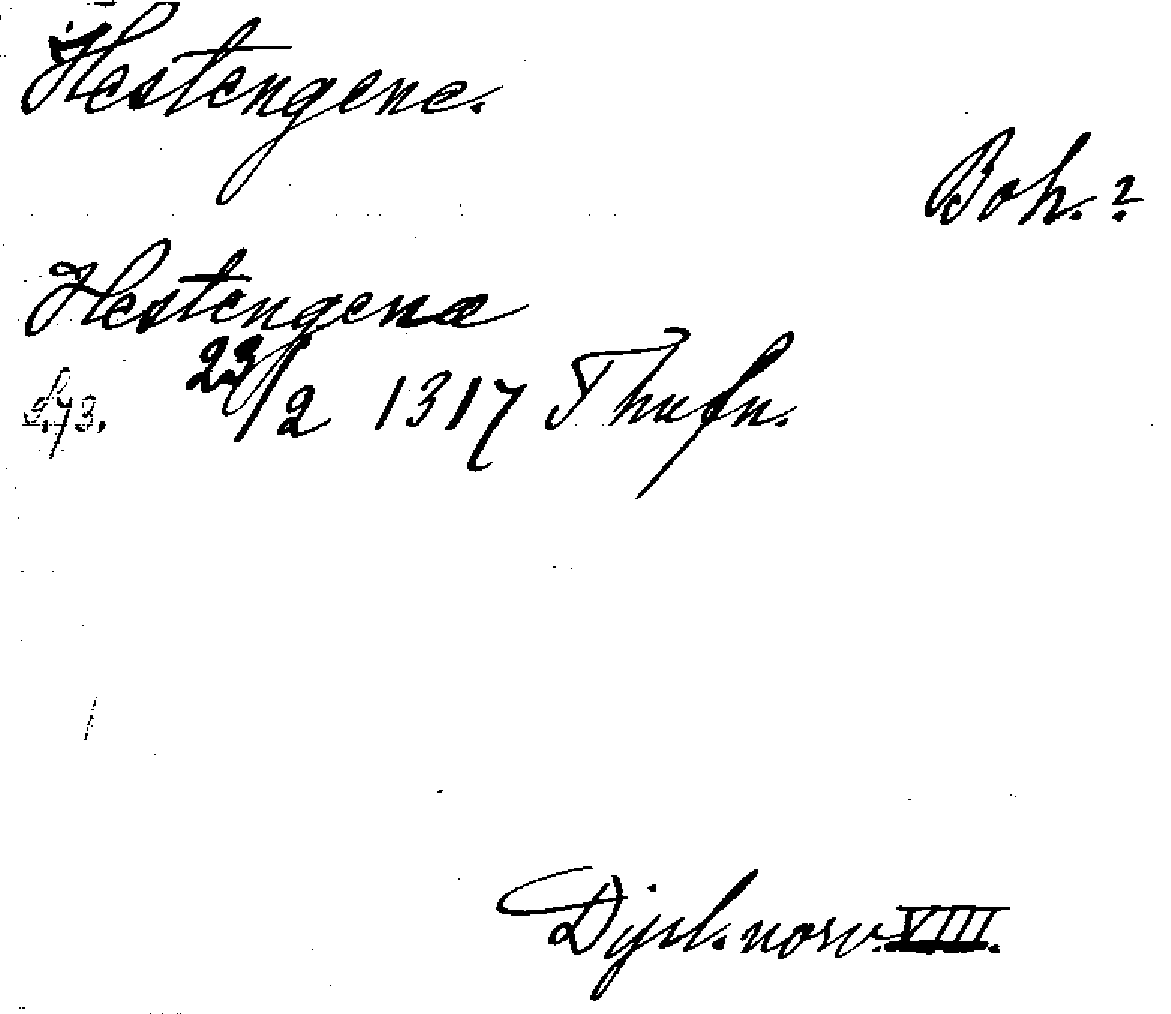 Hestengene.
Boh. ?
Hestengenæ
s. 73. 23/2 1317 Thufn.
Dipl. norv. VIII.